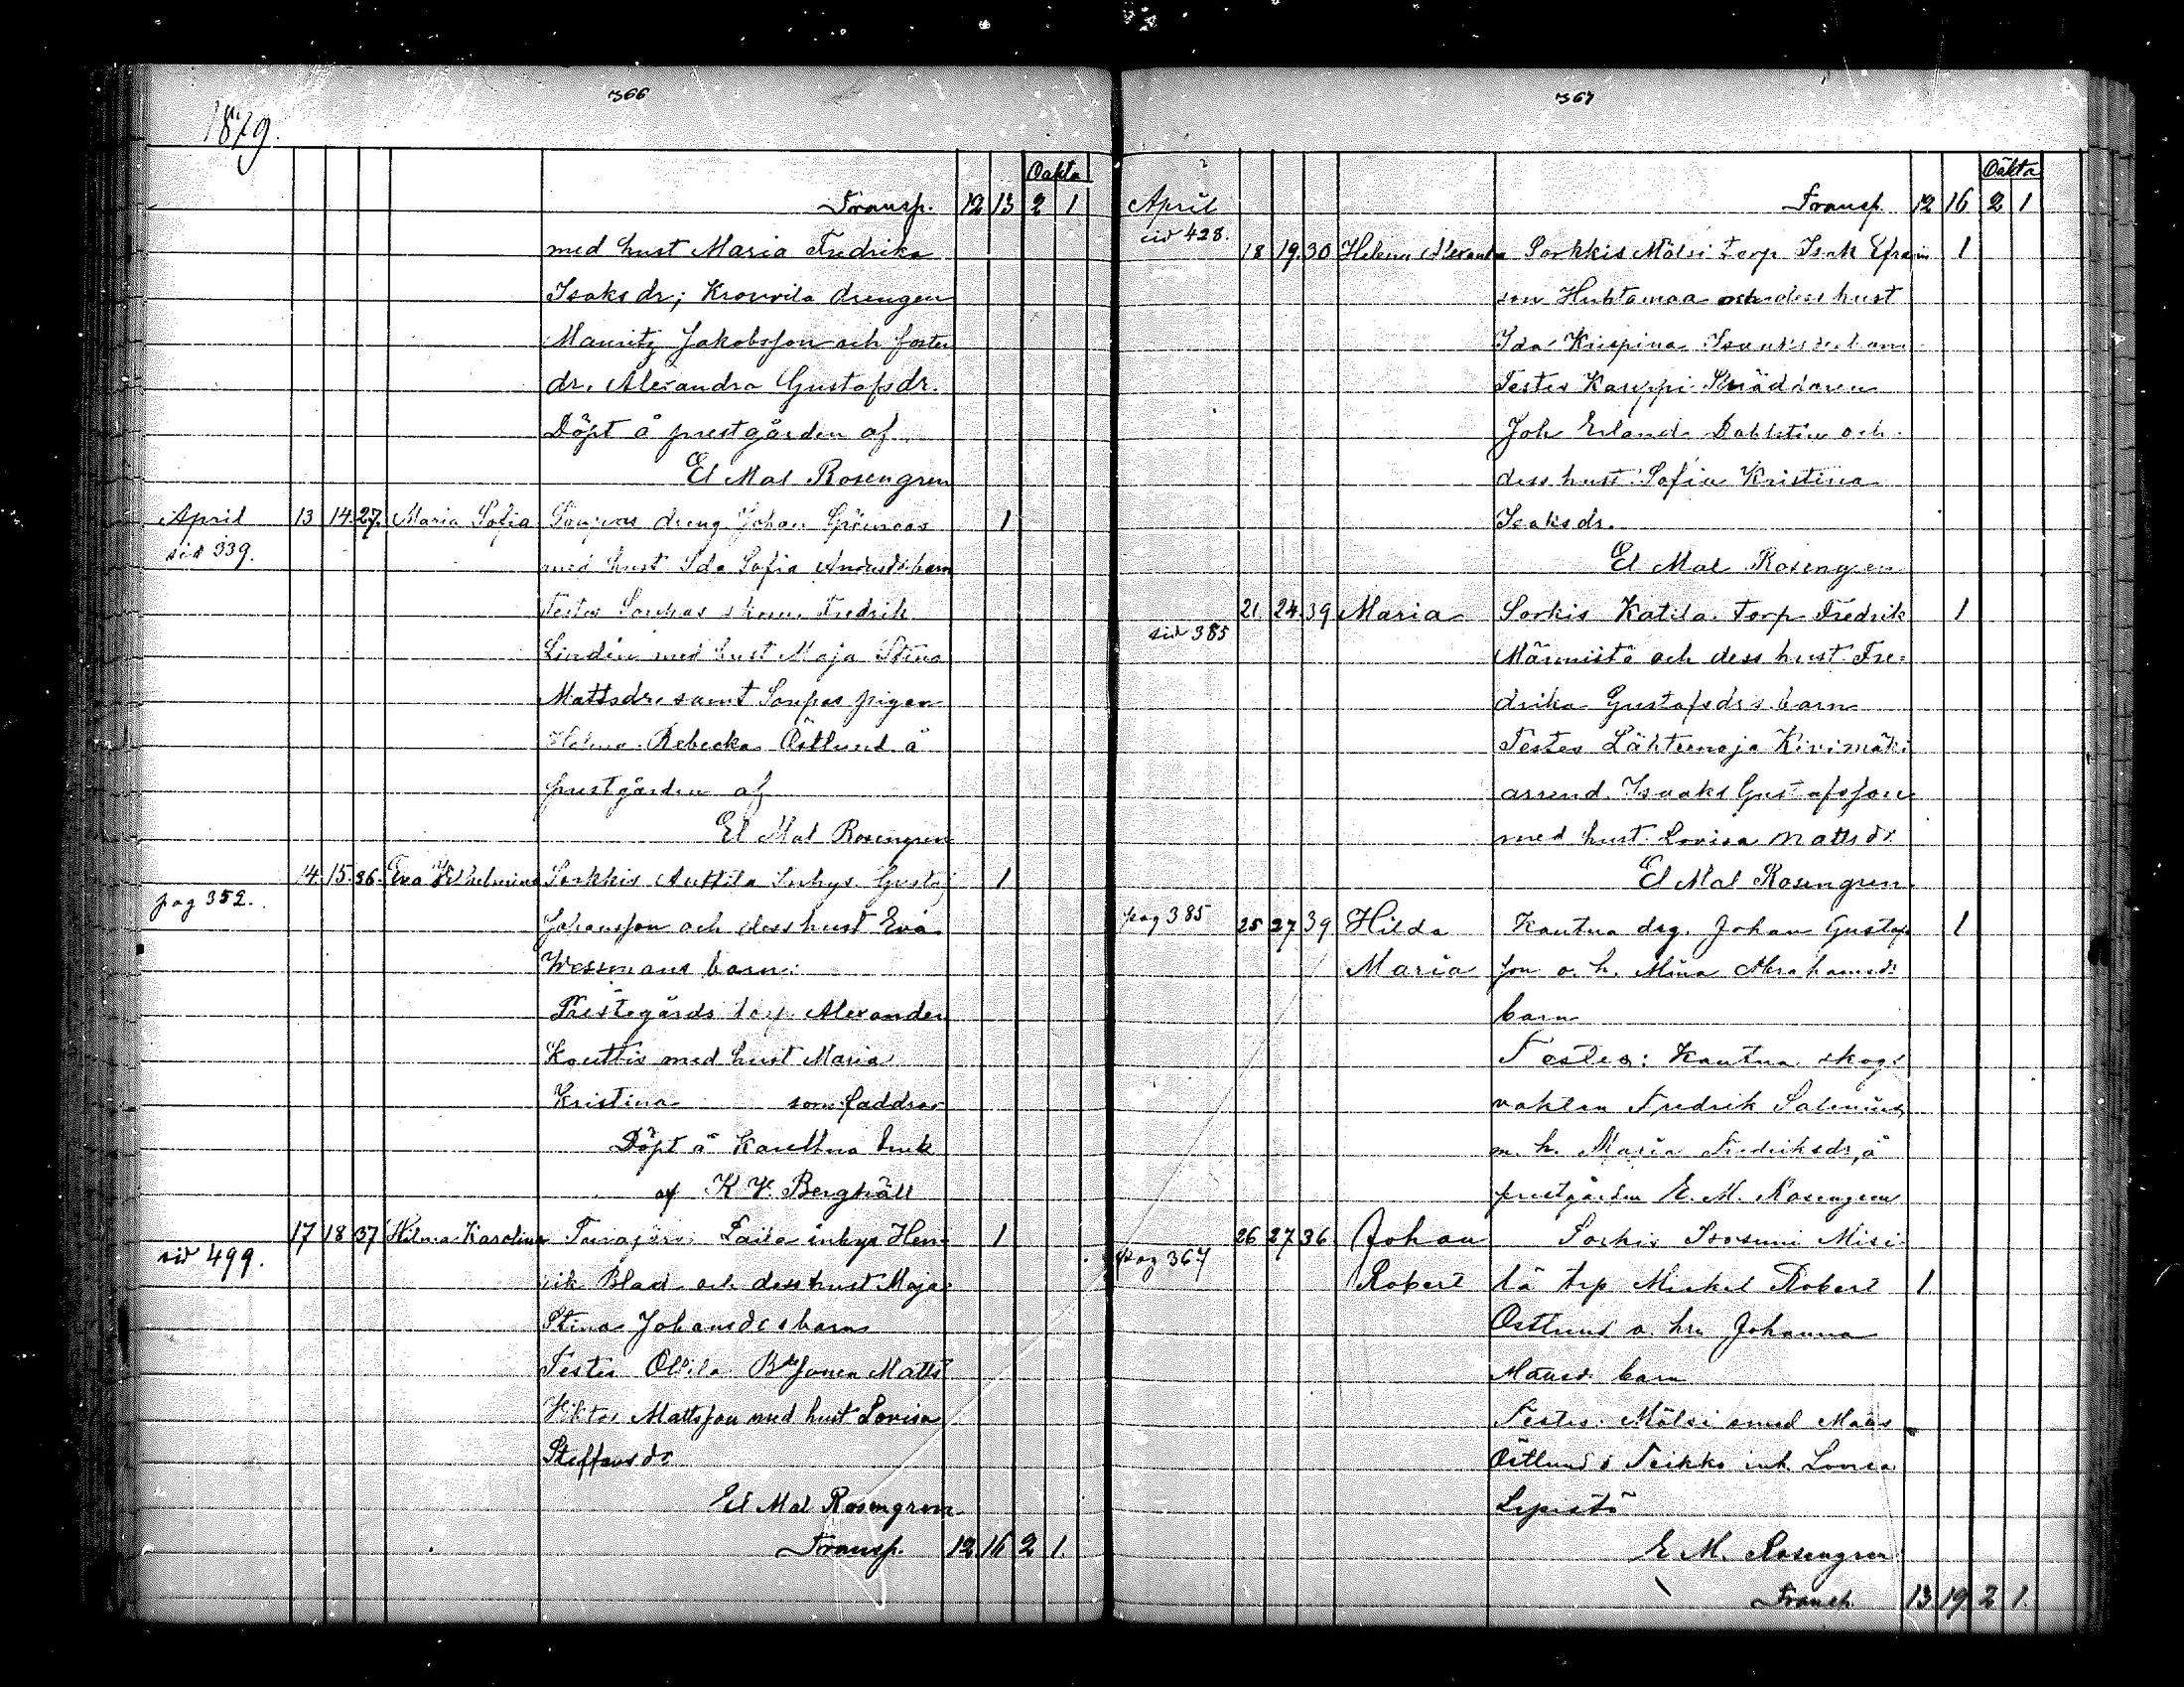 366
1879.
Oäkta
Transp. 12 13 2 1
med hust Maria Fredrika
Isaksdr; Krouvila drengen
Mauritz Jakobsson och foster
dr. Alexandra Gustafsdr.
Döpt å prestgården af
El Mal Rosengren
April 13 14 27. Maria Sofia dreng Johan 1
sid 339.
med hust Ida Sofia barn
Testes Fredrik
Lindén med hust Maja Stina
Mattsdr, samt pigan
Helena Rebecka Östlund å
prestgården af
El Mal Rosengren
14. 15. 36. Eva Wilhelmina Sorkkis Anttila Inhys. Gustaf 1
pag 352.
Johansson och dess hust Eva
Wessmans barn:
Prestegårds torp Alexander
Kouttis med hust Maria
Kristina som faddrar
Döpt å Kauttua bruk
af K V. Berghäll
17 18 37 Hilma Karolina Laila inhys Hen 1
sid 499.
rik Blad och dess hust Maja
Stina Johansdrs barn
Testes Ollila Bdesonen Matts
Viktor Mattsson med hust Lovisa
Steffansdr
El Mal Rosengren
Transp. 12 16 2 1.
367
Oäkta
April Transp. 12 16 2 1
sid 428.
18 19. 30 Helena Alexandra Sorkkis Mölsi torp Isak Efraim 1
son Huhtamaa och dess hust
Ida Krispina barn
Testes Karppi Skräddaren
Joh Erland Dahlstén och
dess hust Sofia Kristina
Isaksdr.
El Mal Rosengren
21. 24. 39 Maria Sorkis Katila Torp Fredrik 1
sid 385
Männistö och dess hust Fre-
drika Gustafsdrs barn
Testes Lähteenoja Kivimäki
arrend. Isaaks Gustafsson
med hust Lovisa Mattsdr
El Mal Rosengren.
pag 385 25 27 39 Hilda Kautua drg. Johan Gustafs 1
Maria son o. h. Mina Abrahamsdr
barn
Testes: Kautua skogs
vaktan Fredrik
m. h. Maria Fredriksdr, å
prestgården E. M. Rosengren
26 27 36 Johan Sorkis Isosuni Misi
pag 367
Robert lä trp Mickel Robert 1
Östlund o. hu Johanna
barn
Testes: Mölsi smed Måns
Östlund o Teikko inh. Lovisa
Lepistö
E M. Rosengren
Transp 13 19. 2 1.